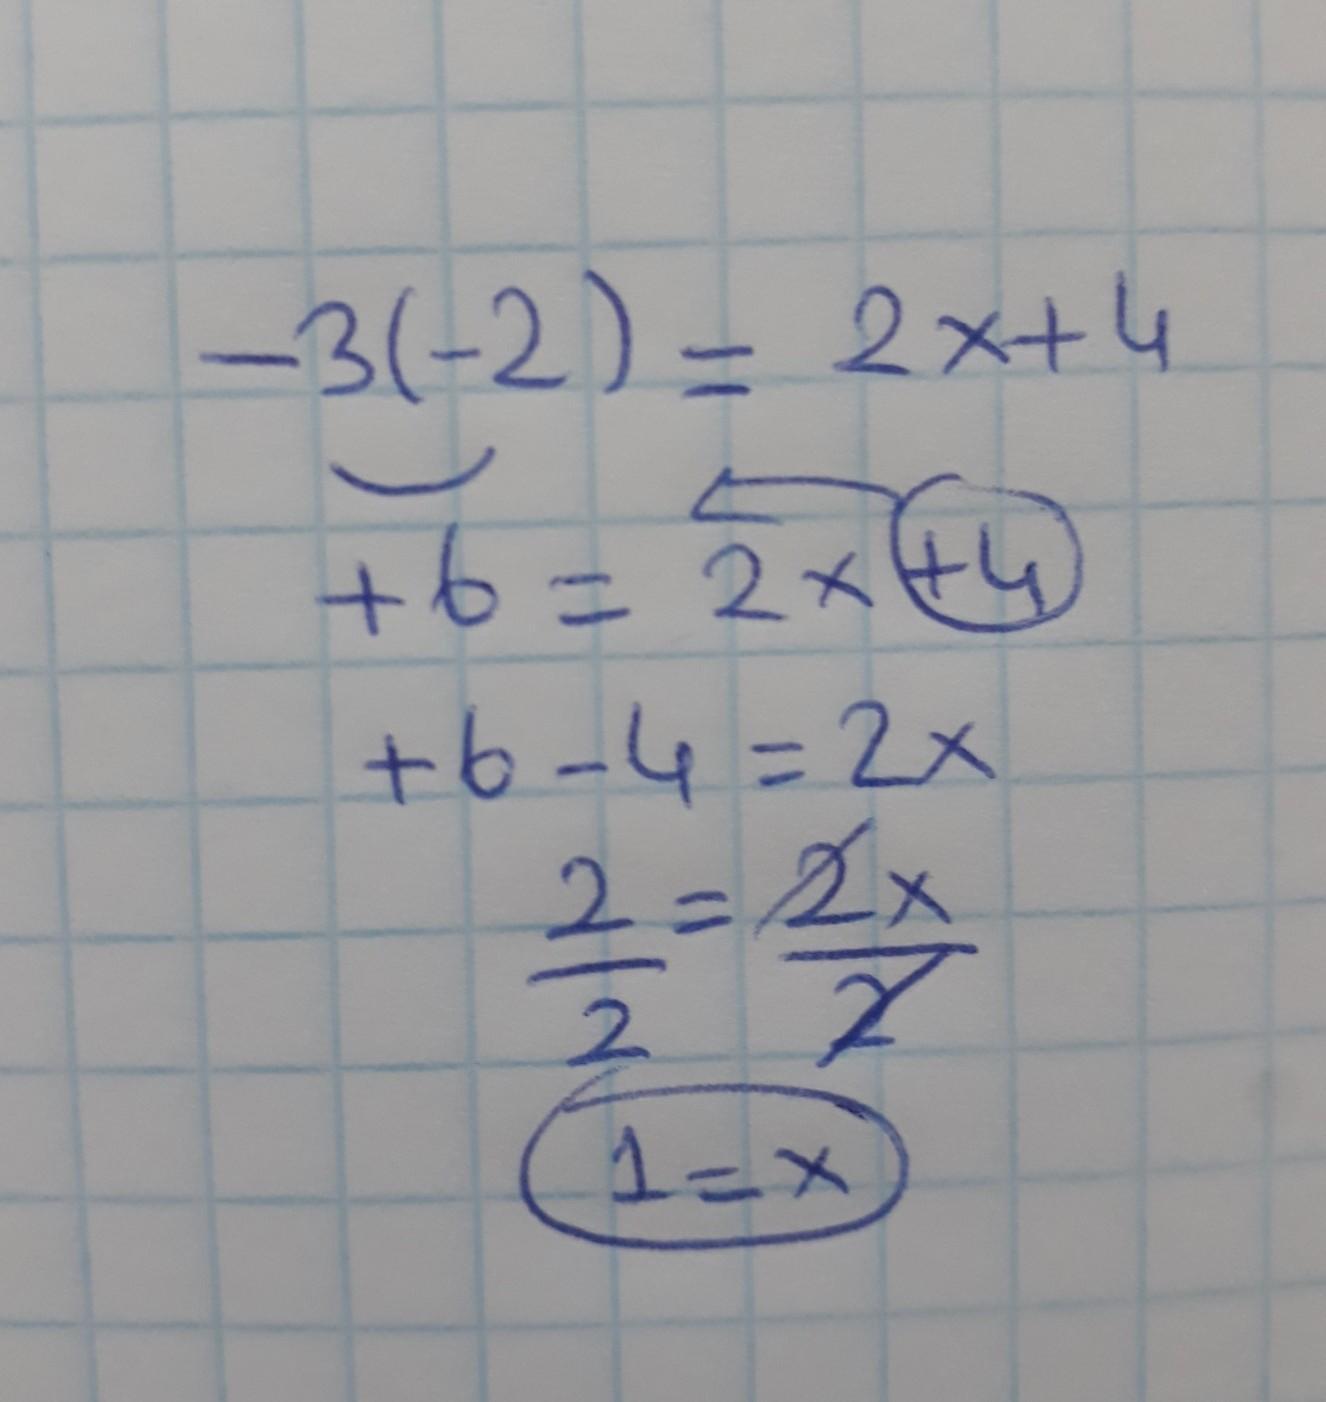 -3(-2) = 2x+4
+6 = 2x+4
+6-4 = 2x
2/2 = 2x/2
1=x